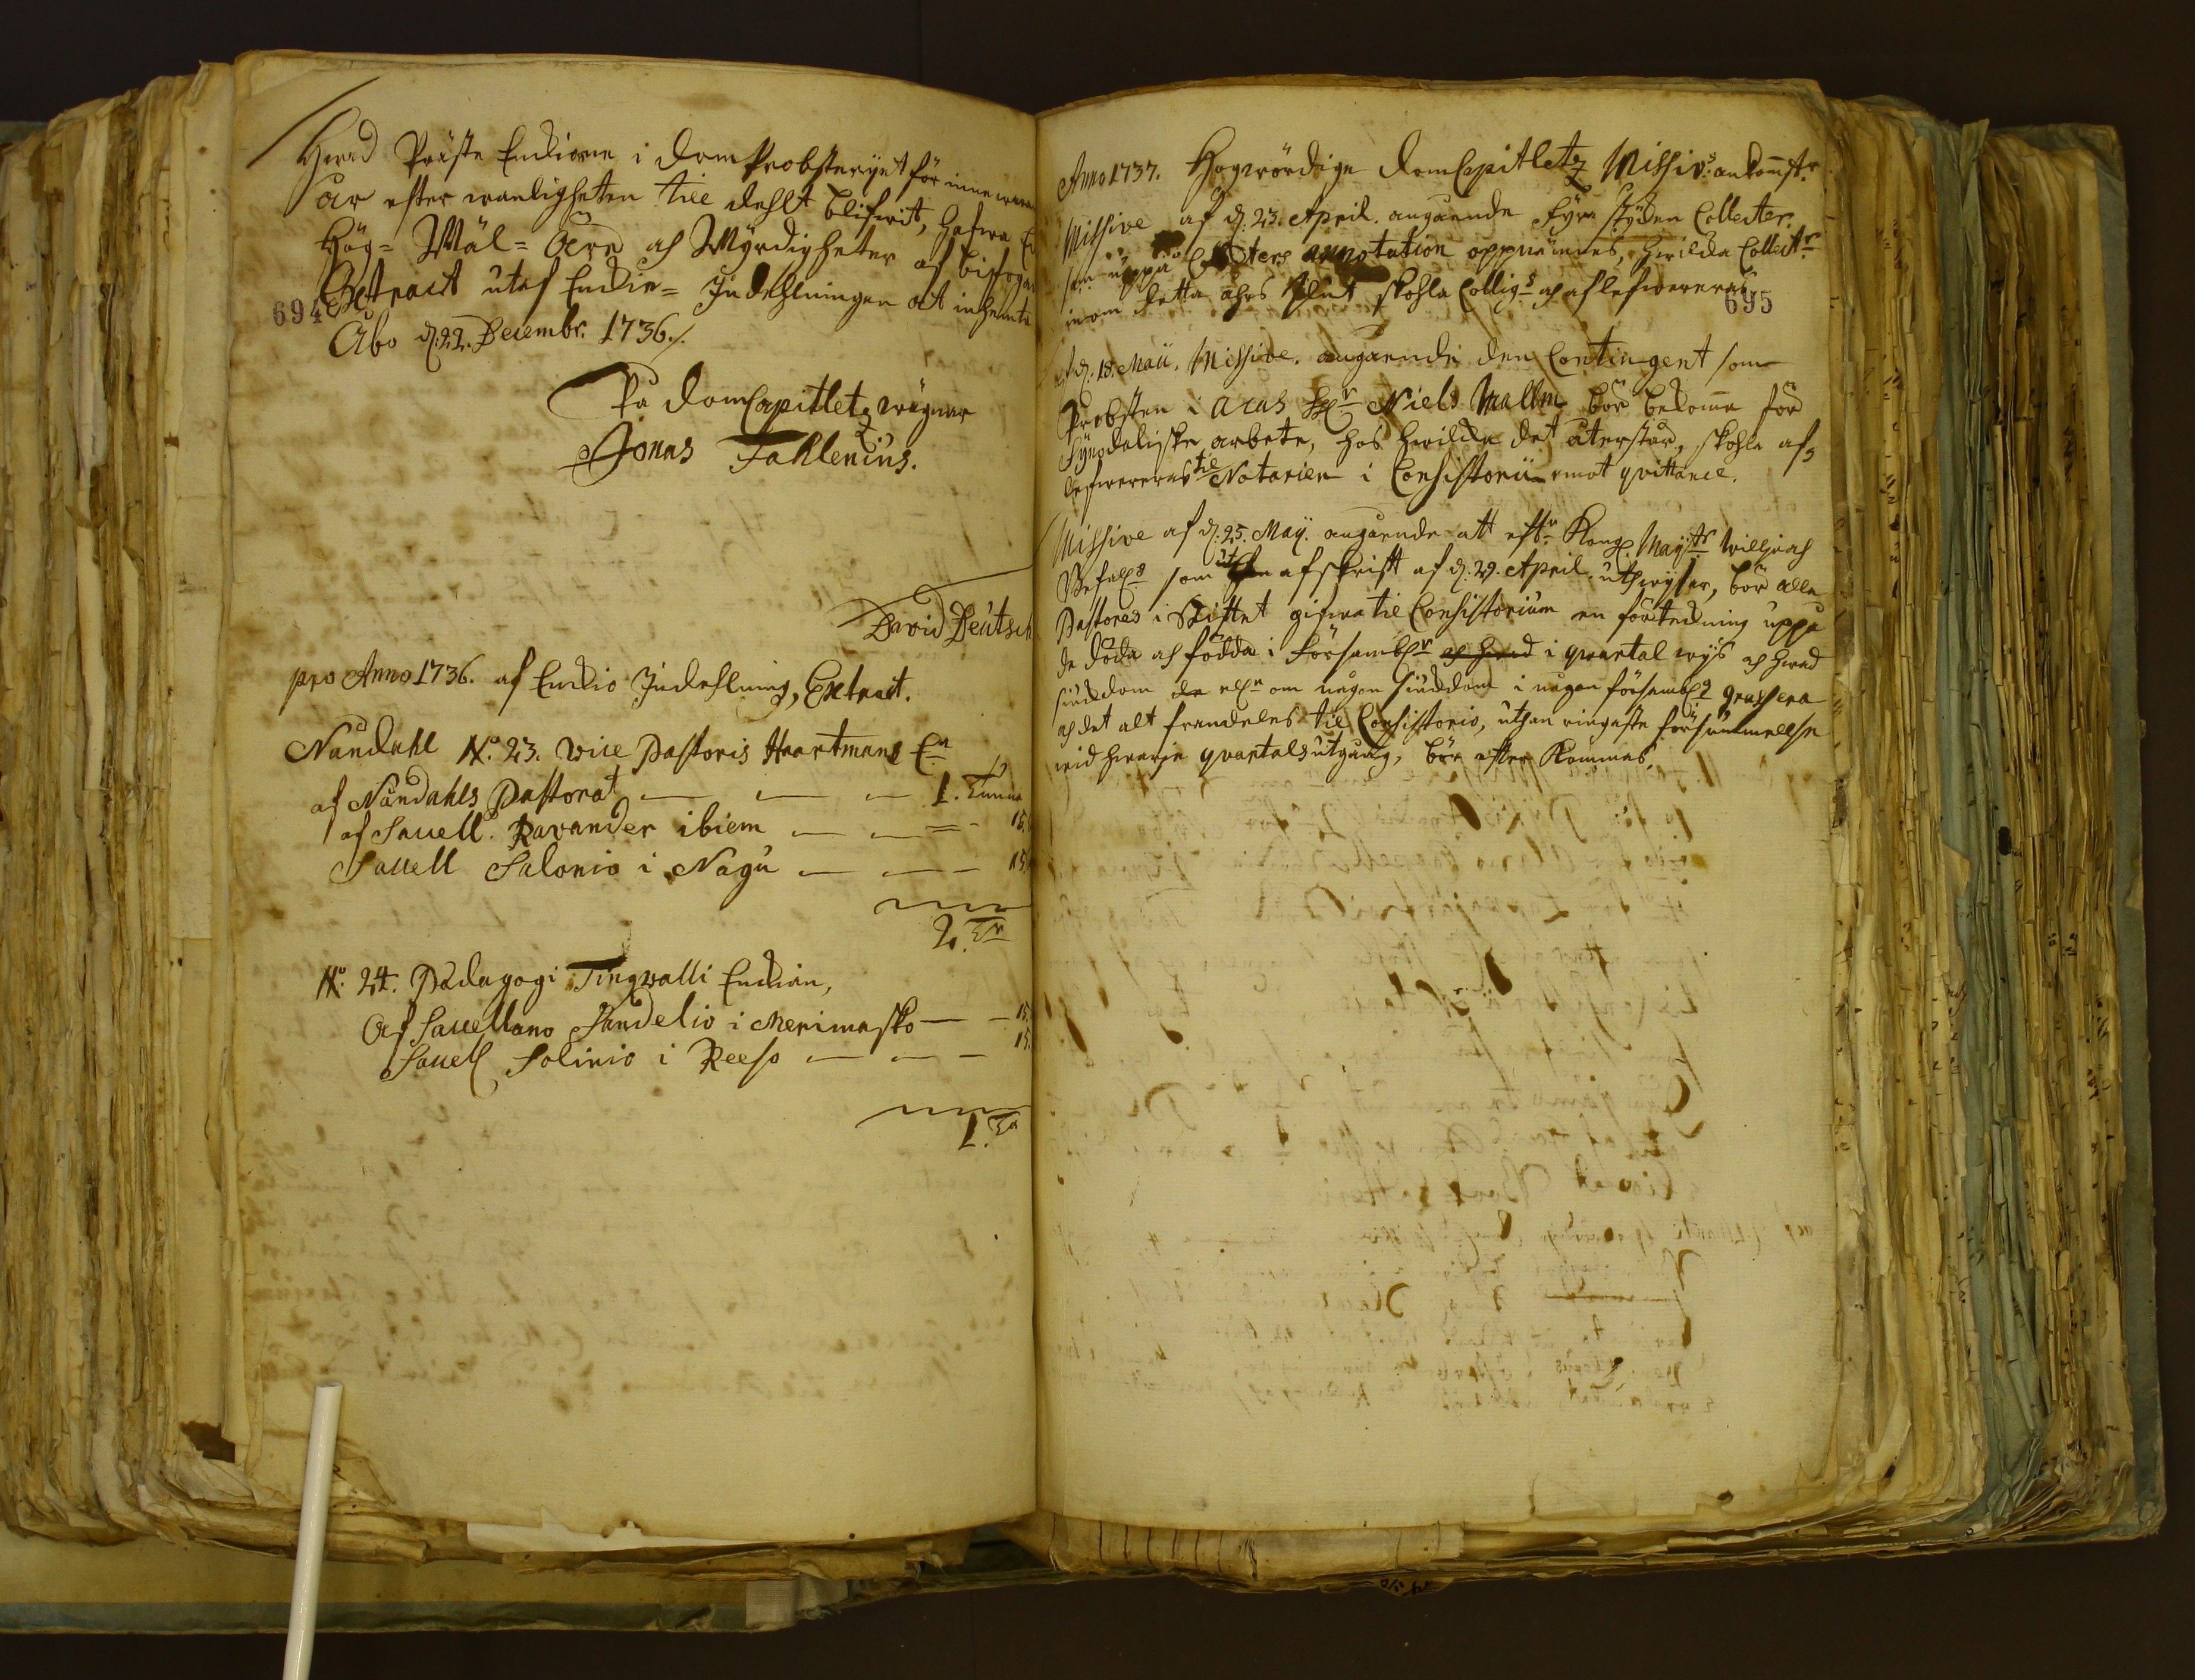 Hwad Präste Enckiorne i DomProbsteryet för innewaran
åhr efter wanligheten till dehlt blifwit, hafwa
Hög= Wäl= Ärw och Wyrdigheter af bifoga
Extract utaf Enckie= Indehlningen at inhemta
694
Åbo d. 22. Decembr. 1736./.
På DomCapitletz wägnar
Jonas Fahlenius.
David Deutsch
pro Anno 1736. af Enckio Indehlning, Extract.
Nåndahl N:o 23. Vice Pastoris Haartmans E:a
af Nåndahls Pastorat — — — 1. Tunna
af Sacell. Ravander ibiem — — — 15.
Sacell Salonio i Nagu — — — 15.
2. T:r
N:o 24. Pædagogi Tingvalli Enckian,
Af Sacellano Sandelio i Merimasko — — 15.
Sacell Solinio i Reeso — — — 15.
1. T:a
Anno 1737. Högwördige DomCapitletz Missiv:s ankomst:r
Missive af d. 23. April. angående fyra styken Collecter.
som uppå annotation oppnämnes, hwilka Collect:r
inom detta åhrs slut skohla Collig:s och aflefwereras.
695
af d. 18. Maii. Missive. angående den Contingent som
Probsten i Acas H:r Niels Mallm bör bekomma för
Synodaliske arbete, hos hwilka det återstår, skohla af=
lefwereras til Notarien i Consistorii emot qvittance.
Missive af d. 25. Maij. angående att eft:r Kongl. Maij:ttz willje och
Befal:g som afskrift af d. 29. April. uthwysar, bör alla
Pastores i Stiftet gifwa til Consistorium en förtekning uppå
de döda och födda i Försambl:r och hwad i qvartal wys och hwad
siukdom de el:r om någon siukdom i någon församb:g grassera
och det alt framdeles til Consistorio, uthan ringaste försummellse
wid hwarje qvartals utgång, bör efter kommas.